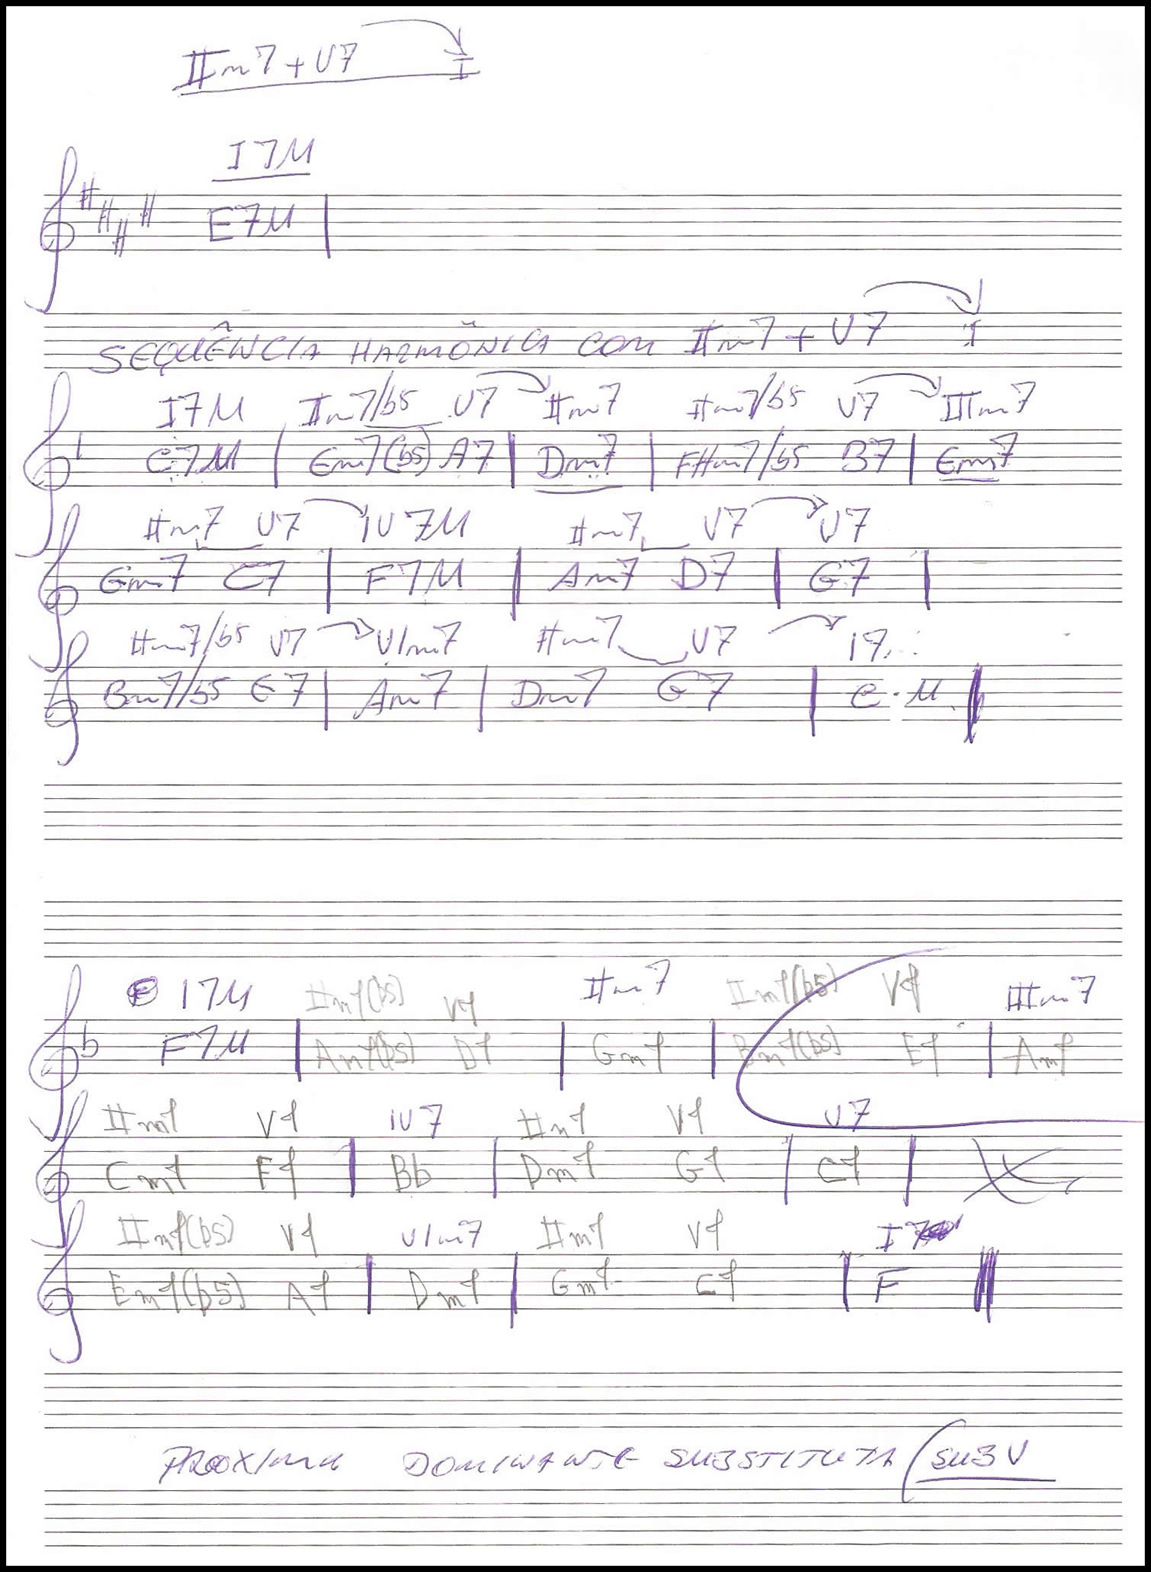 IIm7 + V7 I
I7M
E7M
SEQUÊNCIA HARMÔNICA COM IIm7 + V7 I
I7M IIm7/b5 V7 IIm7 IIm7/b5 V7 IIIm7
C7M Em7(b5) A7 Dm7 F#m7/b5 B7 Em7
IIm7 V7 IV7M IIm7 V7 V7
Gm7 C7 F7M Am7 D7 G7
IIm7/b5 V7 VIm7 IIm7 V7 I7
Bm7/b5 E7 Am7 Dm7 G7 C M
I7M IIm7(b5) V7 IIm7 IIm7(b5) V7 IIIm7
F7M Am7(b5) D7 Gm7 Bm7(b5) E7 Am7
IIm7 V7 IV7 IIm7 V7 V7
Cm7 F7 Bb Dm7 G7 C7
IIm7(b5) V7 VIm7 IIm7 V7 I7
Em7(b5) A7 Dm7 Gm7 C7 F
PROXIMA DOMINANTE SUBSTITUTA (SUB V